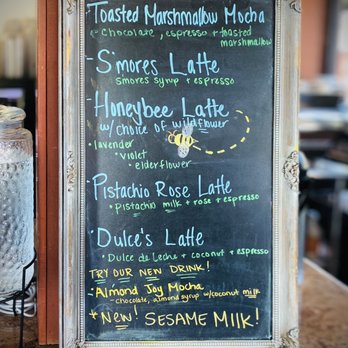 Toasted Marshmallow Mocha
- Chocolate, espresso + toasted
marshmallow
- S'mores Latte
Smores syrup + espresso
- Honeybee Latte
w/ choice of wildflower
• lavender
• violet
• elderflower
• Pistachio Rose Latte
• Pistachio milk + rose + espresso
• Dulce's Latte
• Dulce de Leche + coconut + espresso
TRY OUR NEW DRINK!
• Almond Joy Mocha
- chocolate, almond syrup w/coconut milk
* NEW! SESAME MIlK!